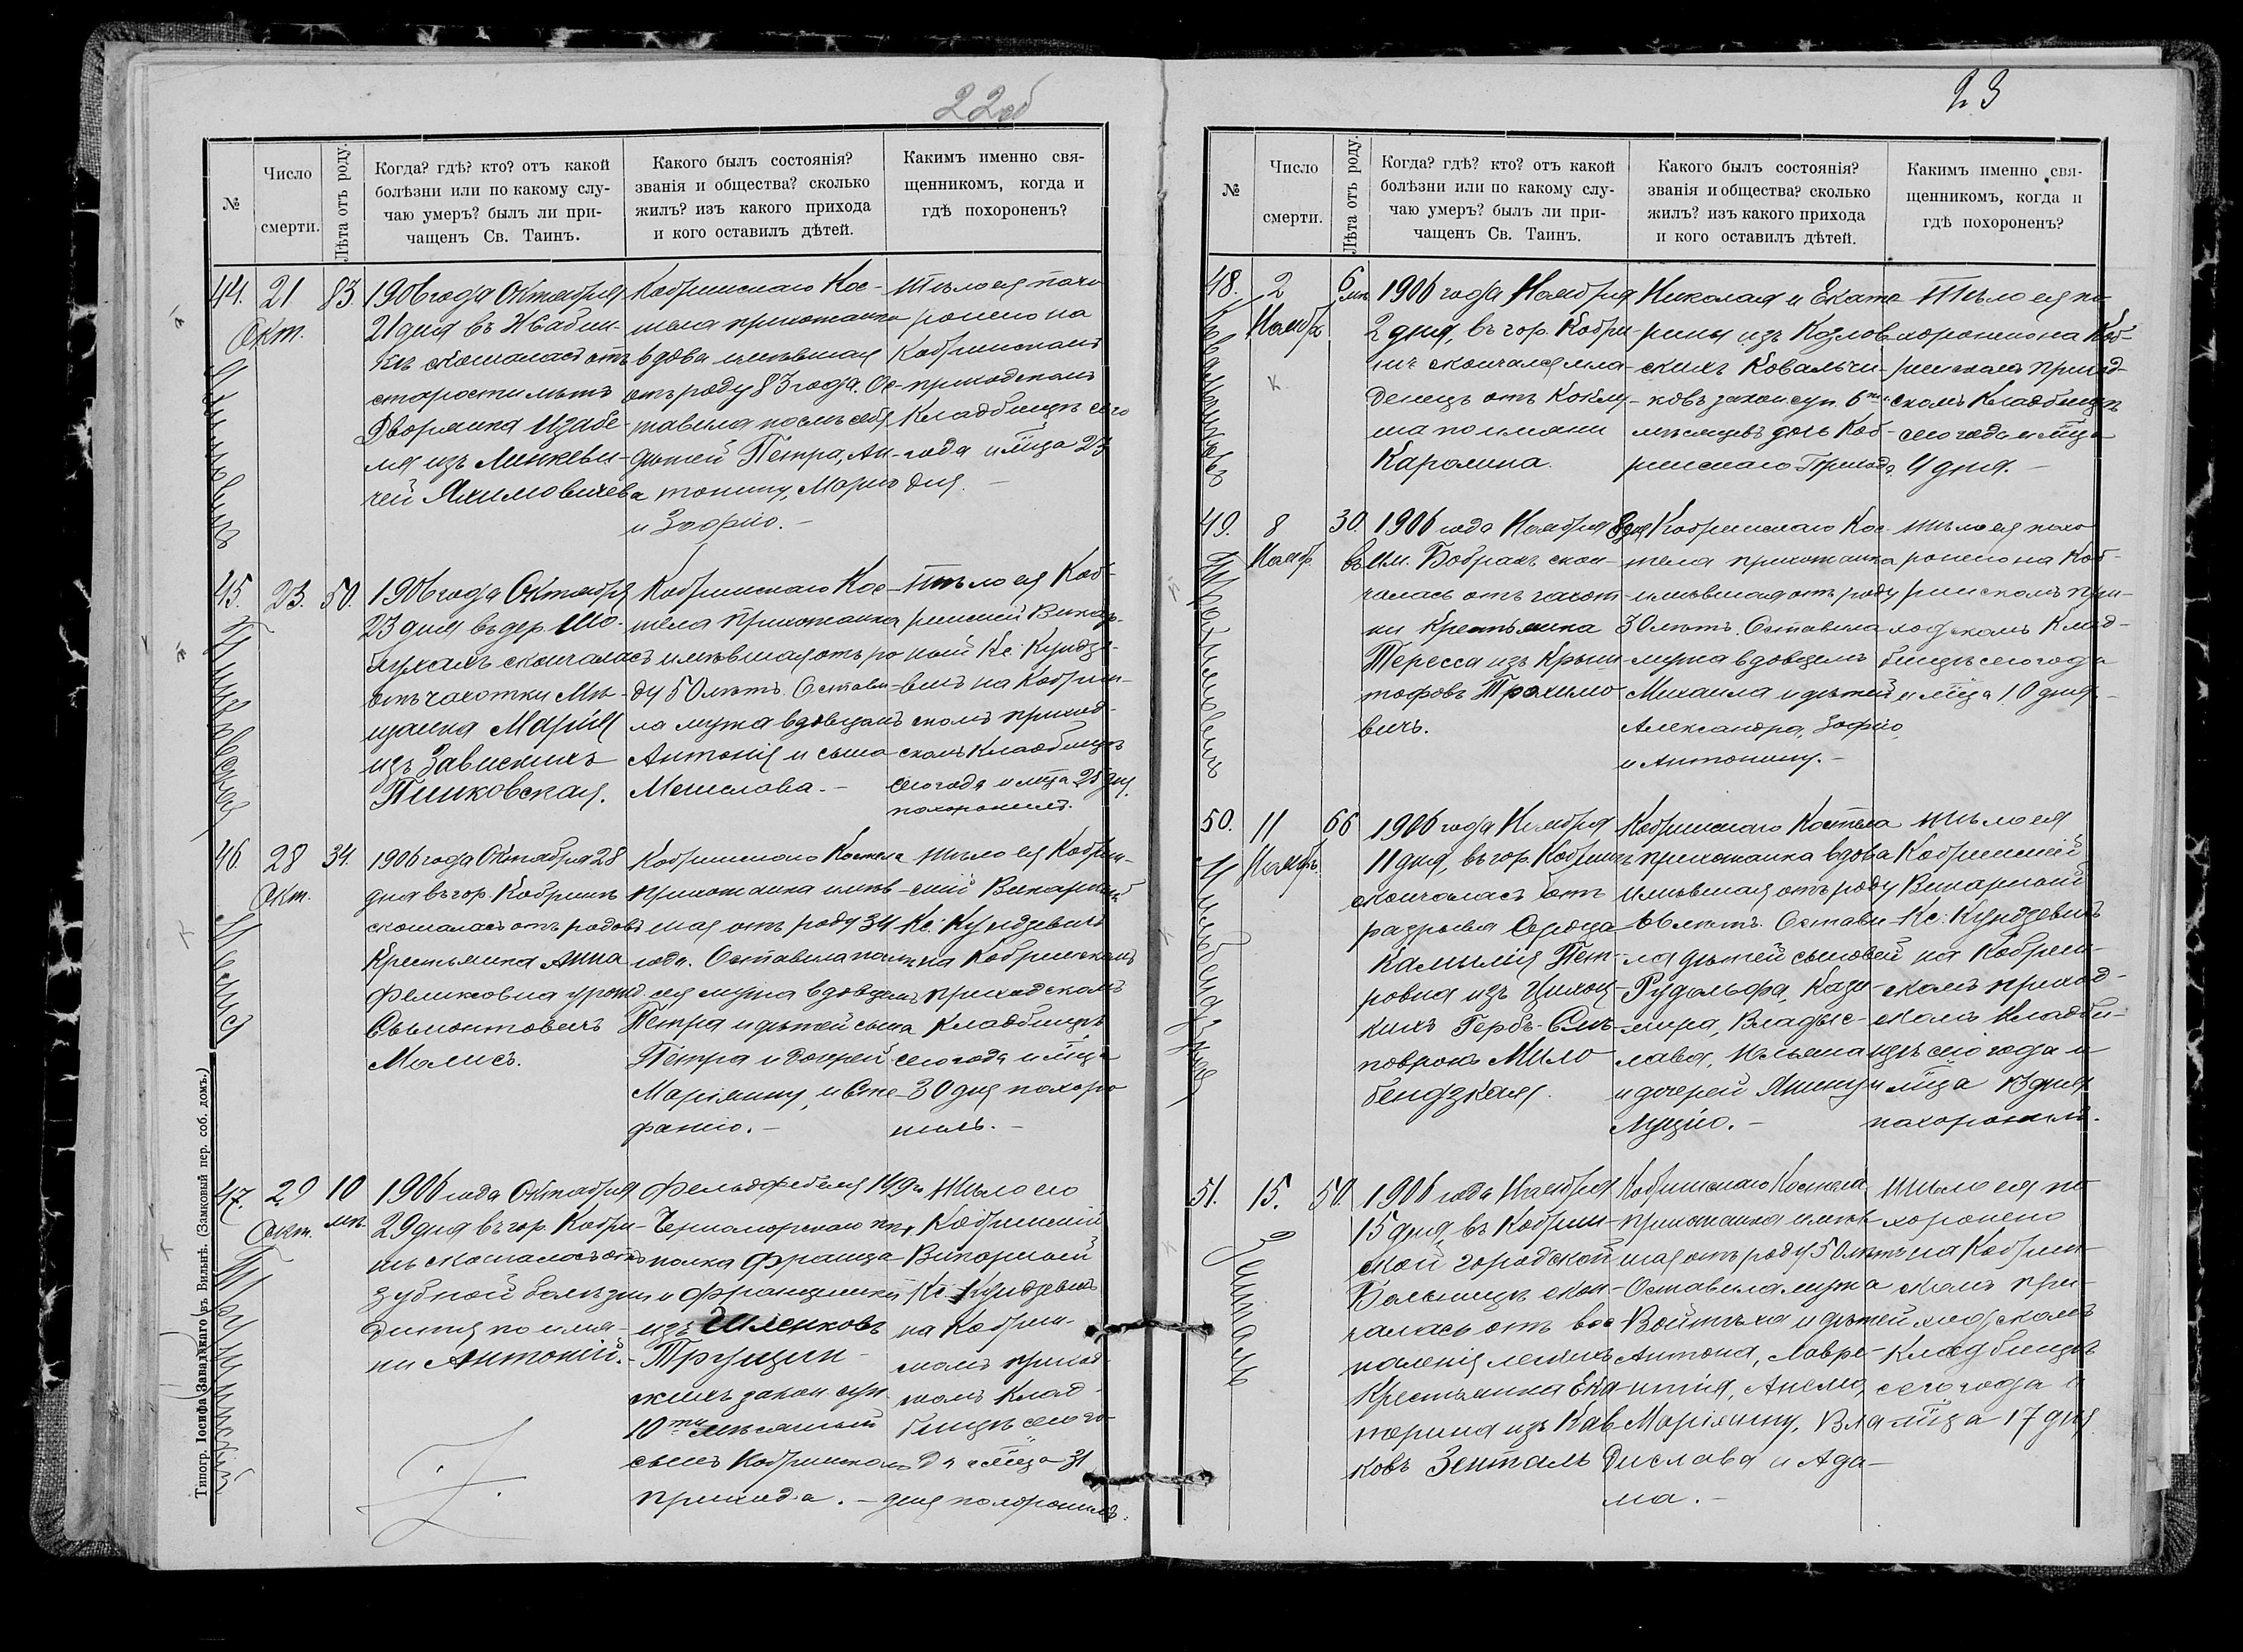 22об
№
Число
смерти.
Лѣта отъ роду.
Когда? гдѣ? кто? отъ какой
болѣзни или по какому слу-
чаю умеръ? былъ ли при-
чащенъ Св. Таинъ.
Какого былъ состоянія?
званія и общества? сколько
жилъ? изъ какого прихода
и кого оставилъ дѣтей.
Какимъ именно свя-
щенникомъ, когда и
гдѣ похороненъ?
44.
21
Окт.
83.
1906 года Октября
21 дня въ
скончалась отъ
старости лѣтъ
Дворянка Изабе-
ля изъ Линкеви-
чей Якимовичева
Кобринскаго Кос-
тела прихожанка
вдова имѣвшая
отъ роду 83 года. Ос-
тавила послѣ себя
дѣтей Петра, Ан-
тонину, Марію
и Зофію. –
Тѣло ея похо
ронено на
Кобринскомъ
приходскомъ
Кладбищѣ сего
года и мѣца 23
дня. –
45.
23.
50.
Пинковская
1906 года Октября
23 дня въ дер. Шо-
скончалась
отъ чахотки Мѣ-
щанка Марія
изъ Завискихъ
Пинковская.
Кобринскаго Кос-
тела прихожанка
имѣвшая отъ ро
ду 50 лѣтъ. Остави-
ла мужа вдовцомъ
Антонія и сына
Мечислава. –
Тѣло ея Коб-
ринскій Викар-
ный Кс. Кундзе-
вичъ на Кобрин-
скомъ приход-
скомъ Кладбищѣ
сего года и мѣца 25 дня
похоронилъ.
46
28
Окт.
34.
Малисъ
1906 года Октября 28
дня въ гор. Кобринѣ
скончалась отъ родовъ
Крестьянка Анна
Феликсовна урожд
Сымонтовичъ
Малисъ.
Кобринскаго Костела
прихожанка имѣв-
шая отъ роду 34
года. Оставила
мужа вдовцомъ
Петра и дѣтей сына
Петра и дочерей
Маріянну, и Сте-
фанію. –
Тѣло ея Кобрин-
скій Викарный
Кс. Кундзевичъ
на Кобринскомъ
приходскомъ
Кладбищѣ
сего года и мѣца
30 дня похоро
нилъ. –
47.
29
Окт.
10
мѣ
1906 года Октября
29 дня въ гор. Кобри-
нѣ скончалось отъ
зубной болѣзни
дитя по име-
ни Антоній.
Фельдфебеля 149го
Черноморскаго пѣх.
полка Франца
и Францишки
изъ Шленковъ
Трущин-
скихъ закон. суп.
10ти мѣсячный
сынъ Кобринскаго
прихода. –
Тѣло его
Кобринскій
Викарный
Кс. Кундзевичъ
на Кобрин-
скомъ приход-
скомъ Клад-
бищѣ сего го-
да и мѣца 31
дня похоронилъ.
Типогр. Іосифа Завадзкаго въ Вильнѣ. (Замковый пер. соб. домъ.)
23
№
Число
смерти.
Лѣта отъ роду.
Когда? гдѣ? кто? отъ какой
болѣзни или по какому слу-
чаю умеръ? былъ ли при-
чащенъ Св. Таинъ.
Какого былъ состоянія?
званія и общества? сколько
жилъ? изъ какого прихода
и кого оставилъ дѣтей.
Какимъ именно свя-
щенникомъ, когда и
гдѣ похороненъ?
48.
2
Ноябр.
6
мѣ
Ковальчикъ
1906 года Ноября
2 дня, въ гор. Кобри
нѣ скончался мла-
денецъ отъ Коклю-
ша по имени
Каролина.
Николая и Екате
рины изъ Козлов-
скихъ Ковальчи-
ковъ закон. суп. 6ти
мѣсяцевъ дочь Коб-
ринскаго Прихода.
Тѣло ея по
хоронено на Коб-
ринскомъ приход-
скомъ Кладбищѣ
сего года и мѣца
4 дня. –
49.
8
Ноябр.
30.
Трохимовичъ
1906 года Ноября 8 дня
въ им. Бобрахъ скон-
чалась отъ чахот-
ки Крестьянка
Тересса изъ Криш-
тофовъ Трохимо
вичъ.
Кобринскаго Кос
тела прихожанка
имѣвшая отъ роду
30 лѣтъ. Оставила
мужа вдовцомъ
Михаила и дѣтей
Александра, Зофію,
и Антонину. –
Тѣло ея похо
ронено на Коб-
ринскомъ при-
ходскомъ Клад-
бищѣ сего года
и мѣца 10 дня –
50.
11
Ноябр.
66
1906 года Ноября
11 дня, въ гор. Кобринѣ
скончалась отъ
разрыва Сердца
Камилія Пет-
ровна изъ Цихоц-
кихъ Гербъ-Слѣ-
повронъ Мило
бендзкая.
Кобринскаго Костела
прихожанка вдова
имѣвшая отъ роду
66 лѣтъ. Остави
ла дѣтей сыновей
Рудольфа, Кази-
мира, Владыс-
лава,
и дочерей Янину и
Луцію. –
Тѣло ея
Кобринскій
Викарный
Кс. Кундзевичъ
на Кобрин-
скомъ приход-
скомъ Кладби-
щѣ сего года и
мѣца 13 дня
похоронилъ.
51.
15.
50.
Зенталь
1906 года Ноября
15 дня, въ Кобрин-
ской городской
Больницѣ скон-
чалась отъ вос
паленія легкихъ
Крестьянка Ека
терина изъ Кав
ковъ Зенталь
Кобринскаго Костела
прихожанка имѣв
шая отъ роду 50 лѣтъ
Оставила мужа
Войтѣха и дѣтей
Антона, Лавре-
нтія, Анелю,
Маріянну, Вла
дислава и Ада-
ма. –
Тѣло ея по
хоронено
на Кобрин-
скомъ при-
ходскомъ
Кладбищѣ
сего года и
мѣца 17 дня